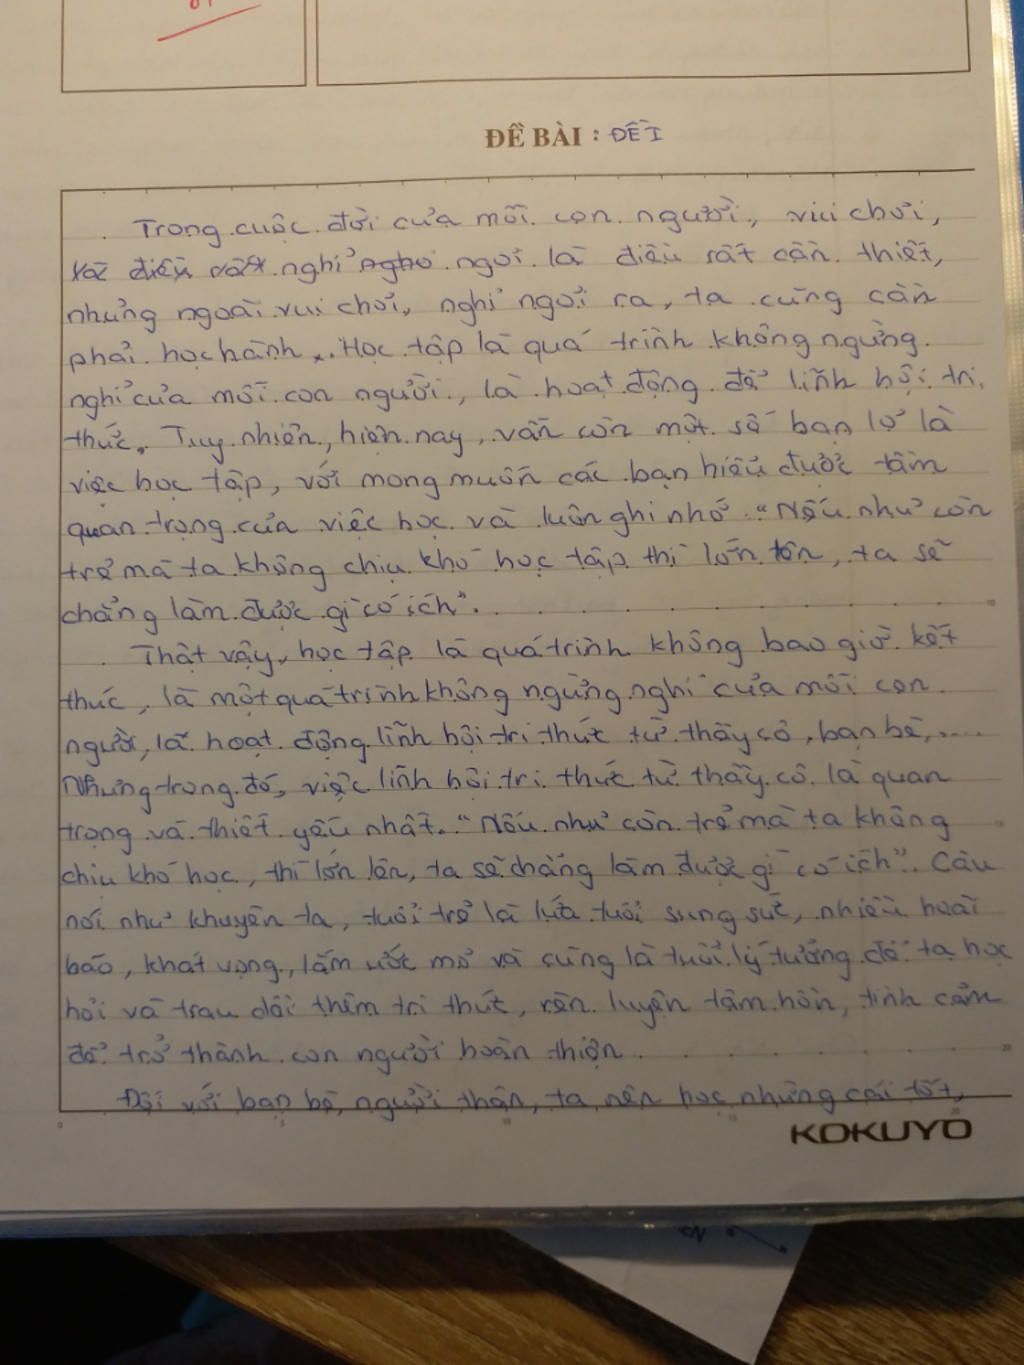 ĐỀ BÀI : ĐỀ I
Trong cuộc đời của mỗi con người, vui chơi,
và điều rất nghỉ nghơ ngơi là điều rất cần thiết,
nhưng ngoài vui chơi, nghỉ ngơi ra, ta cũng cần
phải học hành. Học tập là quá trình không ngừng
nghỉ của mỗi con người, là hoạt động để lĩnh hội tri
thức. Tuy nhiên, hiện nay, vẫn còn một số bạn lơ là
việc học tập, với mong muốn các bạn hiểu được tầm
quan trọng của việc học và luôn ghi nhớ "Nếu như còn
trẻ mà ta không chịu khó học tập thì lớn lên, ta sẽ
chẳng làm được gì có ích".
Thật vậy, học tập là quá trình không bao giờ kết
thúc, là một quá trình không ngừng nghỉ của mỗi con
người, là hoạt động lĩnh hội tri thức từ thầy cô, bạn bè,....
Nhưng trong đó, việc lĩnh hội tri thức từ thầy cô là quan
trọng và thiết yếu nhất. "Nếu như còn trẻ mà ta không
chịu khó học, thì lớn lên, ta sẽ chẳng làm được gì có ích". Câu
nói như khuyên ta, tuổi trẻ là lứa tuổi sung sức, nhiều hoài
bão, khát vọng, lắm ước mơ và cũng là tuổi lý tưởng để ta học
hỏi và trau dồi thêm tri thức, rèn luyện tâm hồn, tình cảm
để trở thành con người hoàn thiện.
Đối với bạn bè, người thân, ta nên học những cái tốt,
KOKUYO